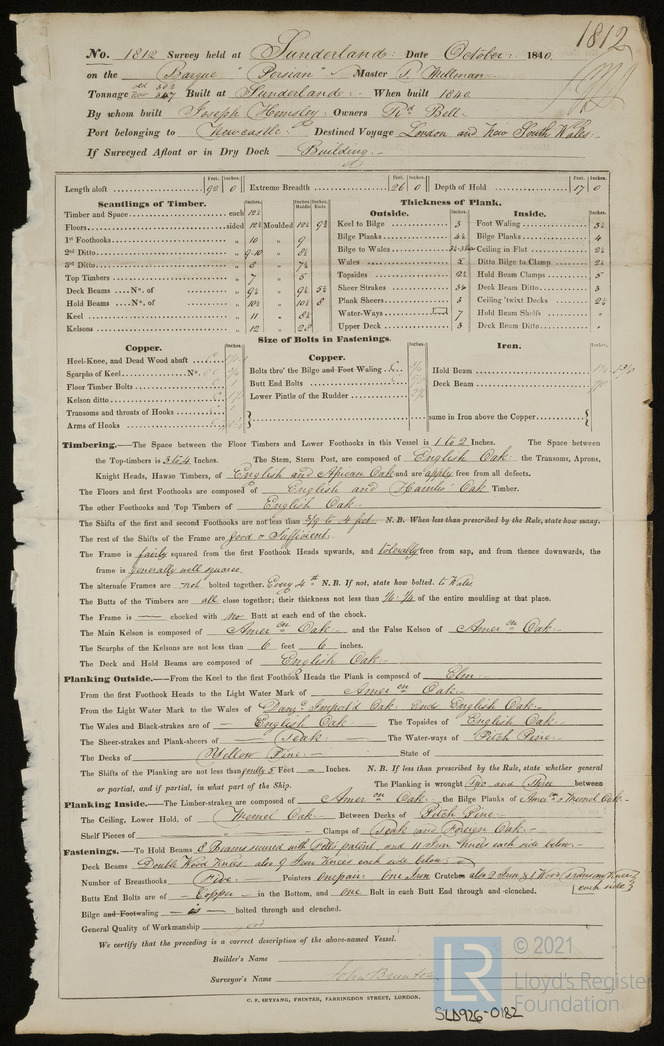 1812
No. 1812 Survey held at Sunderland: Date October: 1840.
on the Barque "Persian" Master Millman
Tonnage old 502 new 447 Built at Sunderland. When built 1840
By whom built Joseph Hemsley: Owners Rd. Bell.
Port belonging to Newcastle: Destined Voyage London and New South Wales.
If Surveyed Afloat or in Dry Dock Building.
Feet. Inches. Feet. Inches. Feet. Inches.
Length aloft 90 0 Extreme Breadth 26 0 Depth of Hold 17 0
Scantlings of Timber. Inches. Inches. Middle Inches. Ends Thickness of Plank.
Outside. Inches. Inside. Inches.
Timber and Space each 12½
Floors sided 12½ Moulded 10½ 9½ Keel to Bilge 3 Foot Waling 3½
1st Foothooks „ 10 „ 9 Bilge Planks 4½ Bilge Planks 4
2nd Ditto „ 9-10 „ 8½ Bilge to Wales Ceiling in Flat 2½
3rd Ditto „ 8 „ 7½ Wales 5 Ditto Bilge to Clamp 2½
Top Timbers „ 7 „ 5 Topsides Hold Beam Clamps 5
Deck Beams No. of „ 9½ „ 9½ 5½ Sheer Strakes Deck Beam Ditto 3
Hold Beams No. of „ 10½ „ 10½ 8 Plank Sheers 3 Ceiling 'twixt Decks 2½
Keel „ 11 „ Water-Ways 7 Hold Beam Shelfs „
Kelsons „ 12 „ Upper Deck 3 Deck Beam Ditto „
Size of Bolts in Fastenings.
Copper. Inches. Copper. Inches. Iron. Inches.
Heel-Knee, and Dead Wood abaft
Scarphs of Keel No.
Floor Timber Bolts
Kelson ditto
Transoms and throats of Hooks
Arms of Hooks
Bolts thro' the Bilge and Foot Waling
Butt End Bolts
Lower Pintle of the Rudder
Hold Beam
Deck Beam
same in Iron above the Copper
Timbering.—The Space between the Floor Timbers and Lower Foothooks in this Vessel is 1 to 2 Inches. The Space between
the Top-timbers is 3 to 4 Inches. The Stem, Stern Post, are composed of English Oak: the Transoms, Aprons,
Knight Heads, Hawse Timbers, of English and African Oak and are apply free from all defects.
The Floors and first Foothooks are composed of English and Oak Timber.
The other Foothooks and Top Timbers of English Oak.
The Shifts of the first and second Foothooks are not less than 3/9 to 4 feet N. B. When less than prescribed by the Rule, state how many.
The rest of the Shifts of the Frame are good & Sufficient.
The Frame is fairly squared from the first Foothook Heads upwards, and tolerably free from sap, and from thence downwards, the
frame is generally well square.
The alternate Frames are not bolted together. Every 4th N. B. If not, state how bolted. to Wales
The Butts of the Timbers are all close together; their thickness not less than of the entire moulding at that place.
The Frame is — chocked with no Butt at each end of the chock.
The Main Kelson is composed of Amer on Oak. and the False Kelson of Amer on Oak.
The Scarphs of the Kelsons are not less than 6 feet 6 inches.
The Deck and Hold Beams are composed of English Oak.
Planking Outside.—From the Keel to the first Foothook Heads the Plank is composed of Elm.
From the first Foothook Heads to the Light Water Mark of Amer on Oak.
From the Light Water Mark to the Wales of Oak. Ends English Oak.
The Wales and Black-strakes are of English Oak The Topsides of English Oak
The Sheer-strakes and Plank-sheers of Teak The Water-ways of Pitch Pine.
The Decks of Yellow Pine. State of —
The Shifts of the Planking are not less than 5 Feet — Inches. N. B. If less than prescribed by the Rule, state whether general
or partial, and if partial, in what part of the Ship. The Planking is wrought Two and Three between
Planking Inside.—The Limber-strakes are composed of Amer on Oak. the Bilge Planks of Amer on & Memel Oak.
The Ceiling, Lower Hold, of Memel Oak. Between Decks of Pitch Pine.
Shelf Pieces of „ Clamps of Teak and Foreign Oak.
Fastenings.—To Hold Beams 8 Beams secured with patent, and 11 Iron Knees each side below.
Deck Beams Double Wood Knees. also 9 Iron Knees each side below.
Number of Breasthooks Five. Pointers one pair. One Iron Crutch also 2 Iron & 1 Wood Knees
each side
Butts End Bolts are of Copper in the Bottom, and one Bolt in each Butt End through and clenched.
Bilge and Footwaling — is — bolted through and clenched.
General Quality of Workmanship
We certify that the preceding is a correct description of the above-named Vessel.
Builder's Name
Surveyor's Name John Brunton
C. F. SEYFANG, PRINTER, FARRINGDON STREET, LONDON.
LR
© 2021
Lloyd's Register
Foundation
SLD926-0182